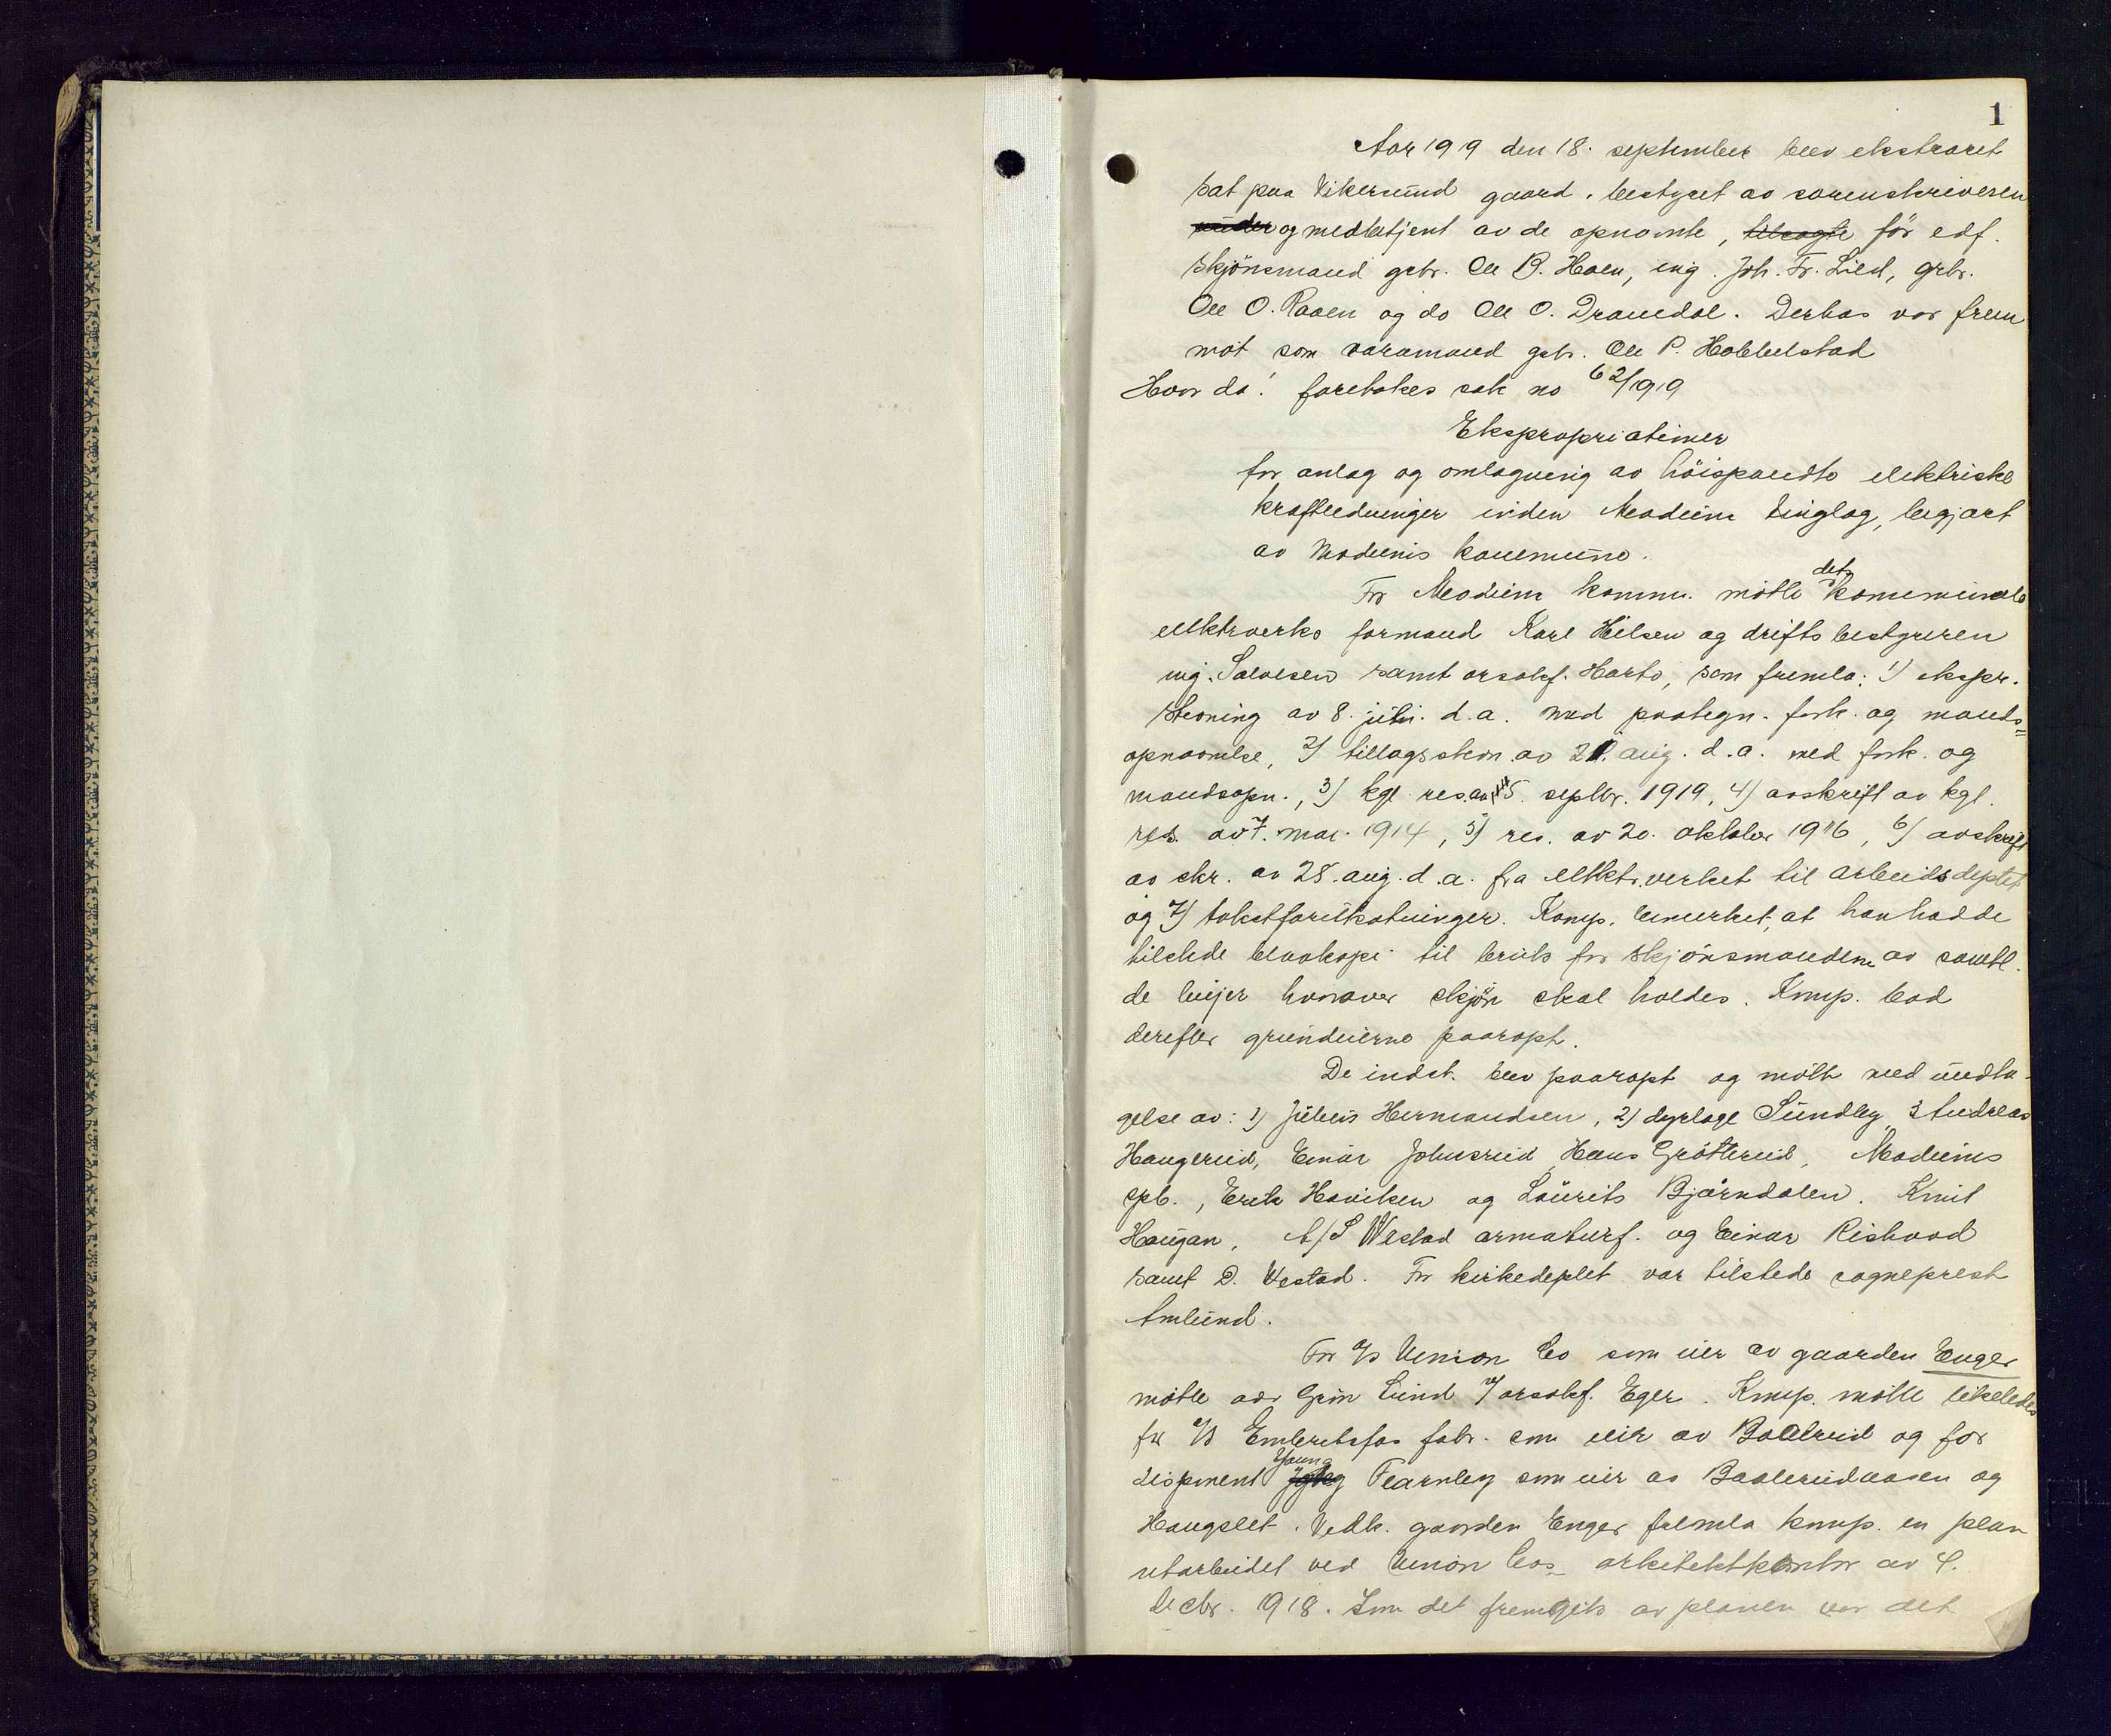 1
Aar 1919 den 18. september blev ekstraret
sat paa Vikersund gaard, bestyret av sorenskriveren
under og medbetjent av de opnævnte, tilsagte før edf.
skjönsmænd gbr. Ole B. Hoen, ing. Joh. Fr. Lied, gbr.
Ole O. Raaen og do Ole O. Dramdal. Derhos var frem
møt som varamand gbr. Ole P. Hobbelstad
Hvor da: foretokes sak no 62/1919
Ekspropriationer
for anlæg og omlægning av höispændte elektriske
kraftledninger inden Modum tinglag, begjært
av Modums kommune.
For Modum komm. møtte det kommunale
elektr.verks formand Karl Nilsen og driftsbestyreren
ing. Salvesen samt orsakf. Harto, som fremla: 1) ekspr.
stevning av 8. juli d.a. med paategn. fork. og mands=
opnævnelse, 2) tillægsstevn. av 21. aug. d.a. med fork. og
mandsopn., 3) kgl. res. av 5. septbr. 1919, 4) avskrift av kgl.
res. av 7. mai 1914, 5) res. av 20. oktober 1916, 6) avskrift
av skr. av 28. aug. d.a. fra elektr.verket til arbeidsdeptet
og 7) takstforutsætninger. Komp. bemerket, at han hadde
tilstede blaakopi til bruk for skjönsmændene av samtl.
de linjer hvorover skjön skal holdes. Komp. bad
derefter grundeierne paaropt.
De indst. blev paaropt og møtte med undta-
gelse av: 1) Julius Hermandsen, 2) dyrlæge Sundby, 3 Andreas
Haugerud, Einar Johnsrud, Hans Grøtterud, Modums
spb., Erik Haviken og Laurits Bjørndalen. Knut
Haugan, A/S Westad armaturf. og Einar Rishovd
samt D. Westad. For kirkedeptet var tilstede sogneprest
Amlund.
For A/S Union Co som eier av gaarden Enger
møtte adv Grim Lund v/ orsakf. Eger. Komp. møtte likeledes
for A/S Embretsfos fabr. som eier av Baalerud og for
disponent Young Fearnley som eier av Baalerudaasen og
Haugslet. Vedk. gaarden Enger fremla komp. en plan
utarbeidet ved Union Cos arkitektkontor av 4.
decbr. 1918. Som det fremgik av planen var det